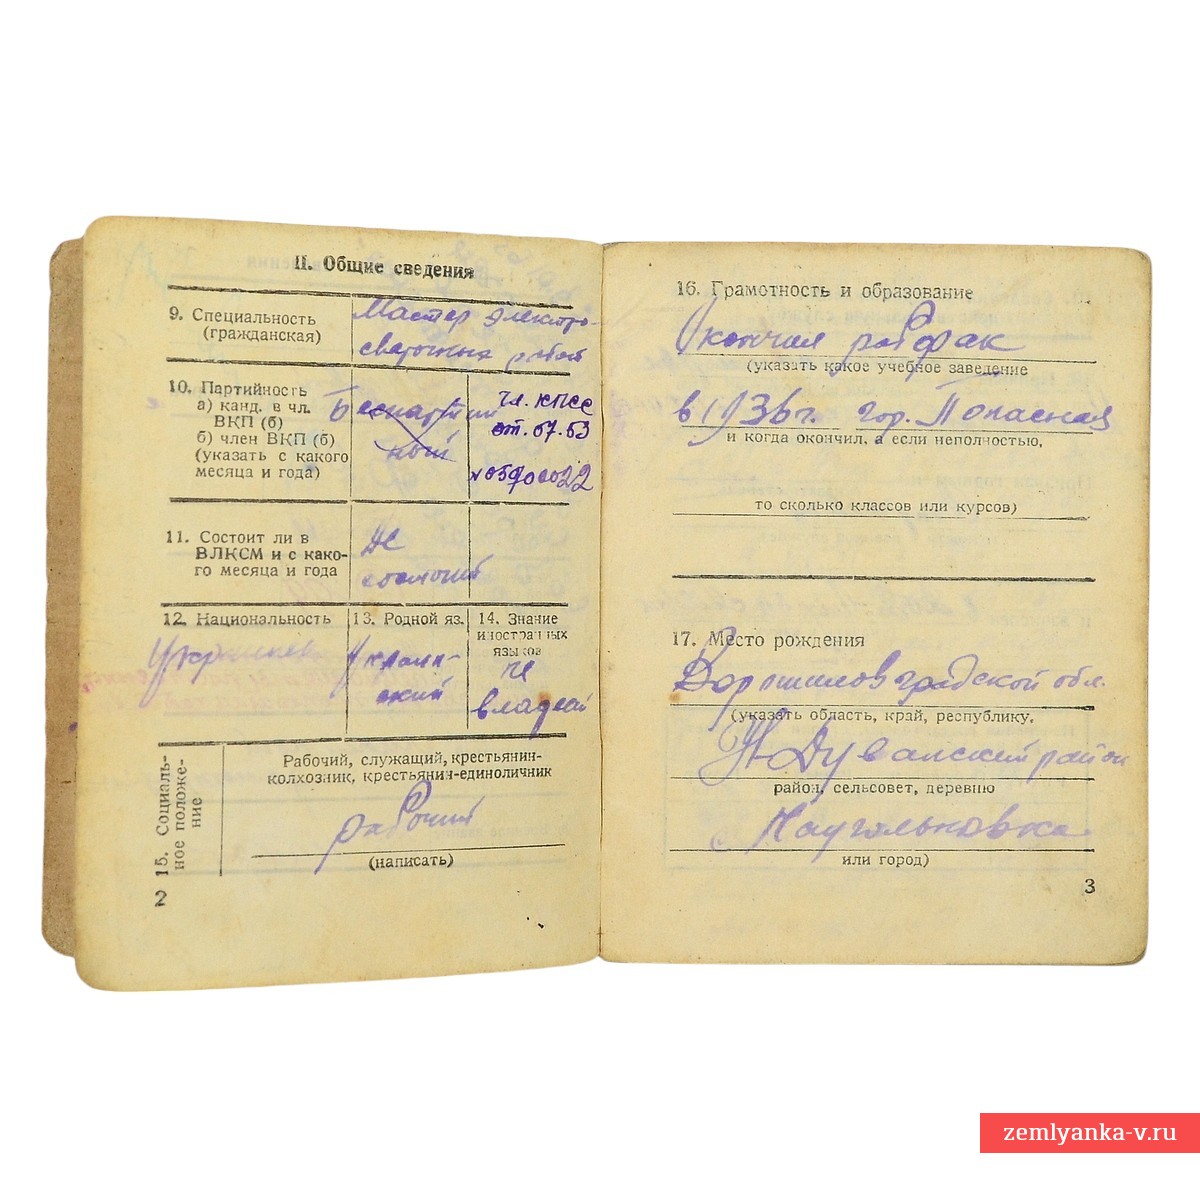 II. Общие сведения
9. Специальность
(гражданская)
Мастер электро-
сварочных работ
10. Партийность
а) канд. в чл.
ВКП (б)
б) член ВКП (б)
(указать с какого
месяца и года)
Беспартий
ный
чл. КПСС
от. 07.53
11. Состоит ли в
ВЛКСМ и с како-
го месяца и года
Не
состоит
12. Национальность
Украинец
13. Родной яз.
Украин-
ский
14. Знание
иностранных
языков
Не
владеет
15. Социаль-
ное положе-
ние
Рабочий, служащий, крестьянин-
колхозник, крестьянин-единоличник
рабочий
(написать)
2
16. Грамотность и образование
Окончил рабфак
(указать какое учебное заведение
в 1936 г. гор. Попасная
и когда окончил, а если неполностью,
то сколько классов или курсов)
17. Место рождения
Ворошиловградской обл.
(указать область, край, республику,
район
район, сельсовет, деревню
с.
или город)
3
zemlyanka-v.ru